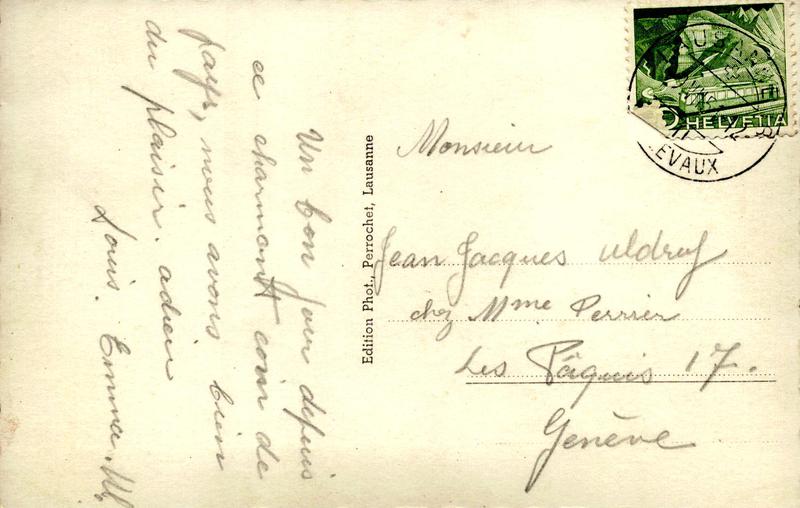 Un bon jour depuis
ce charmant coin de
pays, nous avons bien
du plaisir. adieu
Louis. Emma. W.
Edition Phot., Perrochet, Lausanne
Monsieur
Jean Jacques
chez Mme Perrier
Les Pâquis 17.
Genève
5 HELVETIA
LAUSANNE
EVAUX